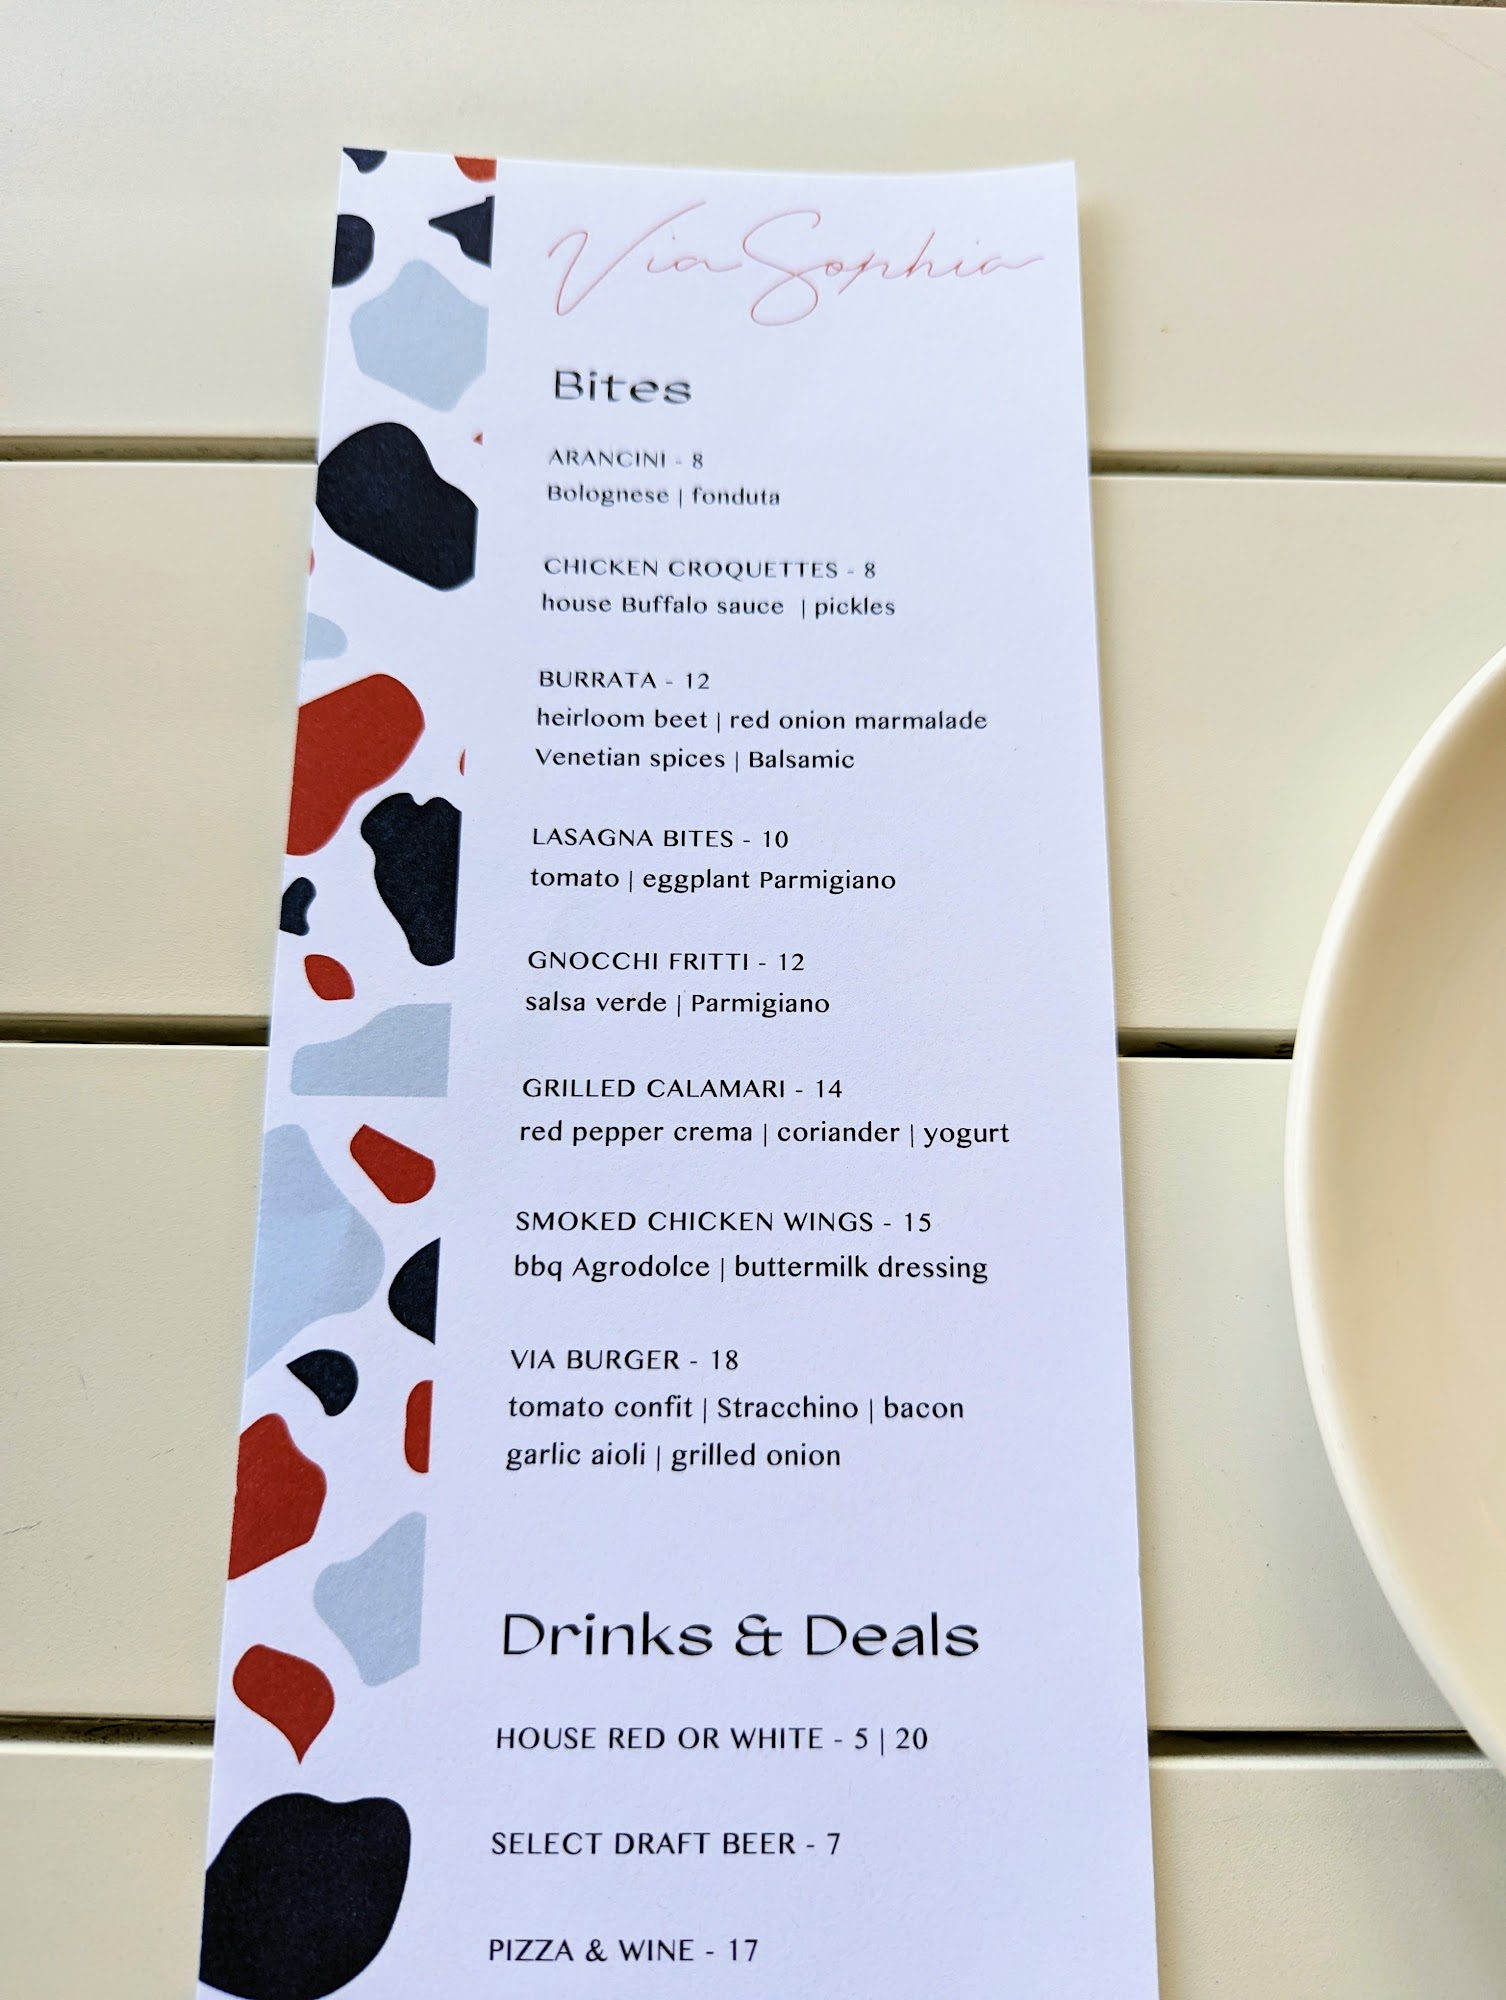 Via Sophia
Bites
ARANCINI - 8
Bolognese | fonduta
CHICKEN CROQUETTES - 8
house Buffalo sauce | pickles
BURRATA - 12
heirloom beet | red onion marmalade
Venetian spices | Balsamic
LASAGNA BITES - 10
tomato | eggplant Parmigiano
GNOCCHI FRITTI - 12
salsa verde | Parmigiano
GRILLED CALAMARI - 14
red pepper crema | coriander | yogurt
SMOKED CHICKEN WINGS - 15
bbq Agrodolce | buttermilk dressing
VIA BURGER - 18
tomato confit | Stracchino | bacon
garlic aioli | grilled onion
Drinks & Deals
HOUSE RED OR WHITE - 5 | 20
SELECT DRAFT BEER - 7
PIZZA & WINE - 17